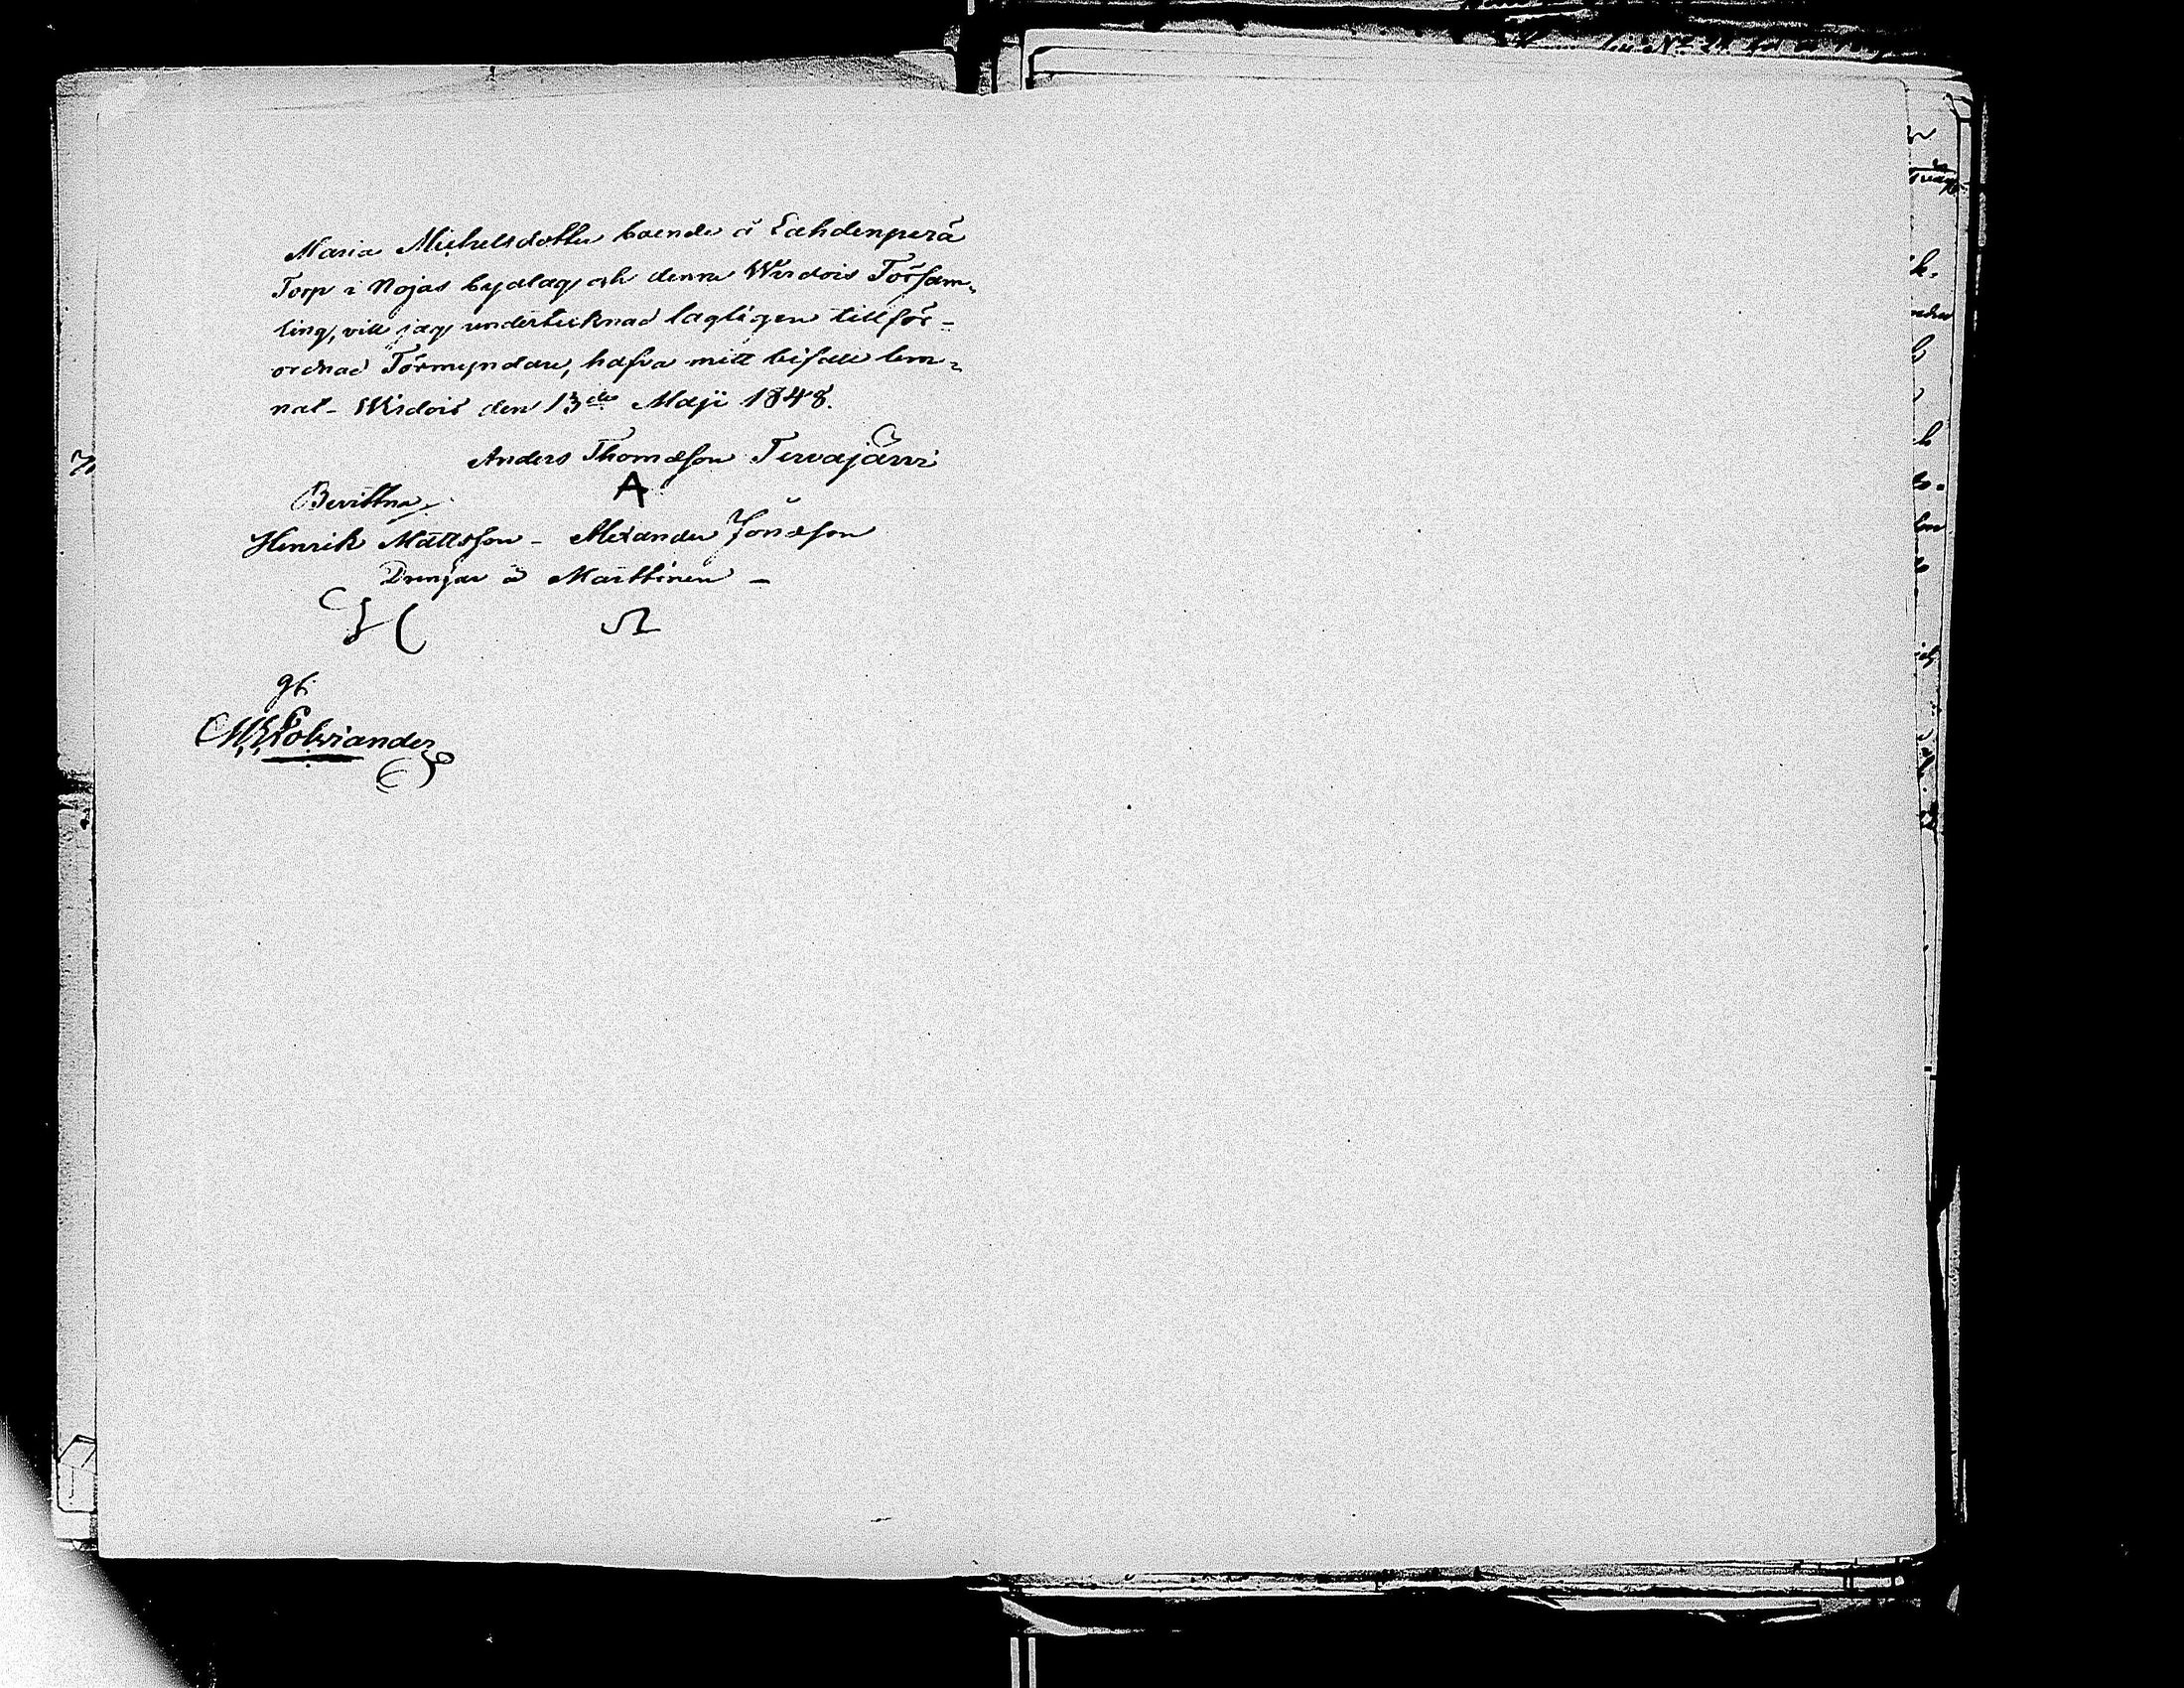 Maria Michelsdotter boende å Lahdenperä
Torp i Nojas byalag och denna Wirdois Försam-
ling, vill jag undertecknad lagligen tillför-
ordnad Förmyndare, hafva mitt bifall lem-
nat - Wirdois den 13de Maji 1848.
Anders Thomasson Tervajärvi
A
Bevittna
Henrik Mattsson - Alexander Jonasson
Drengar å Marttinen -